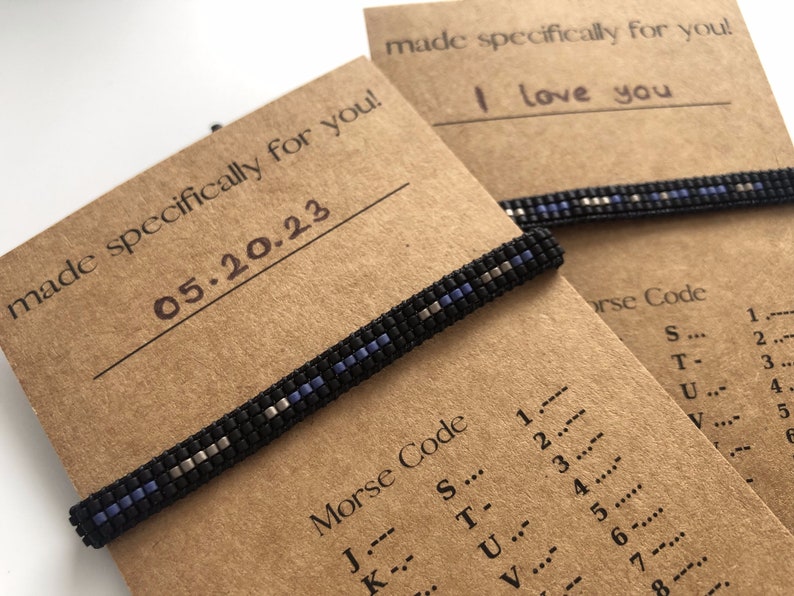 made specifically for you!
05.20.23
Morse Code
J .---
K -.-
S ...
T -
U ..-
V ...-
1 .----
2 ..---
3 ...--
4 ....-
5 .....
6 -....
7 --...
8
made specifically for you!
I love you
Morse Code
S ...
T -
U ..-
V ...-
1 .----
2
3
4
5
6